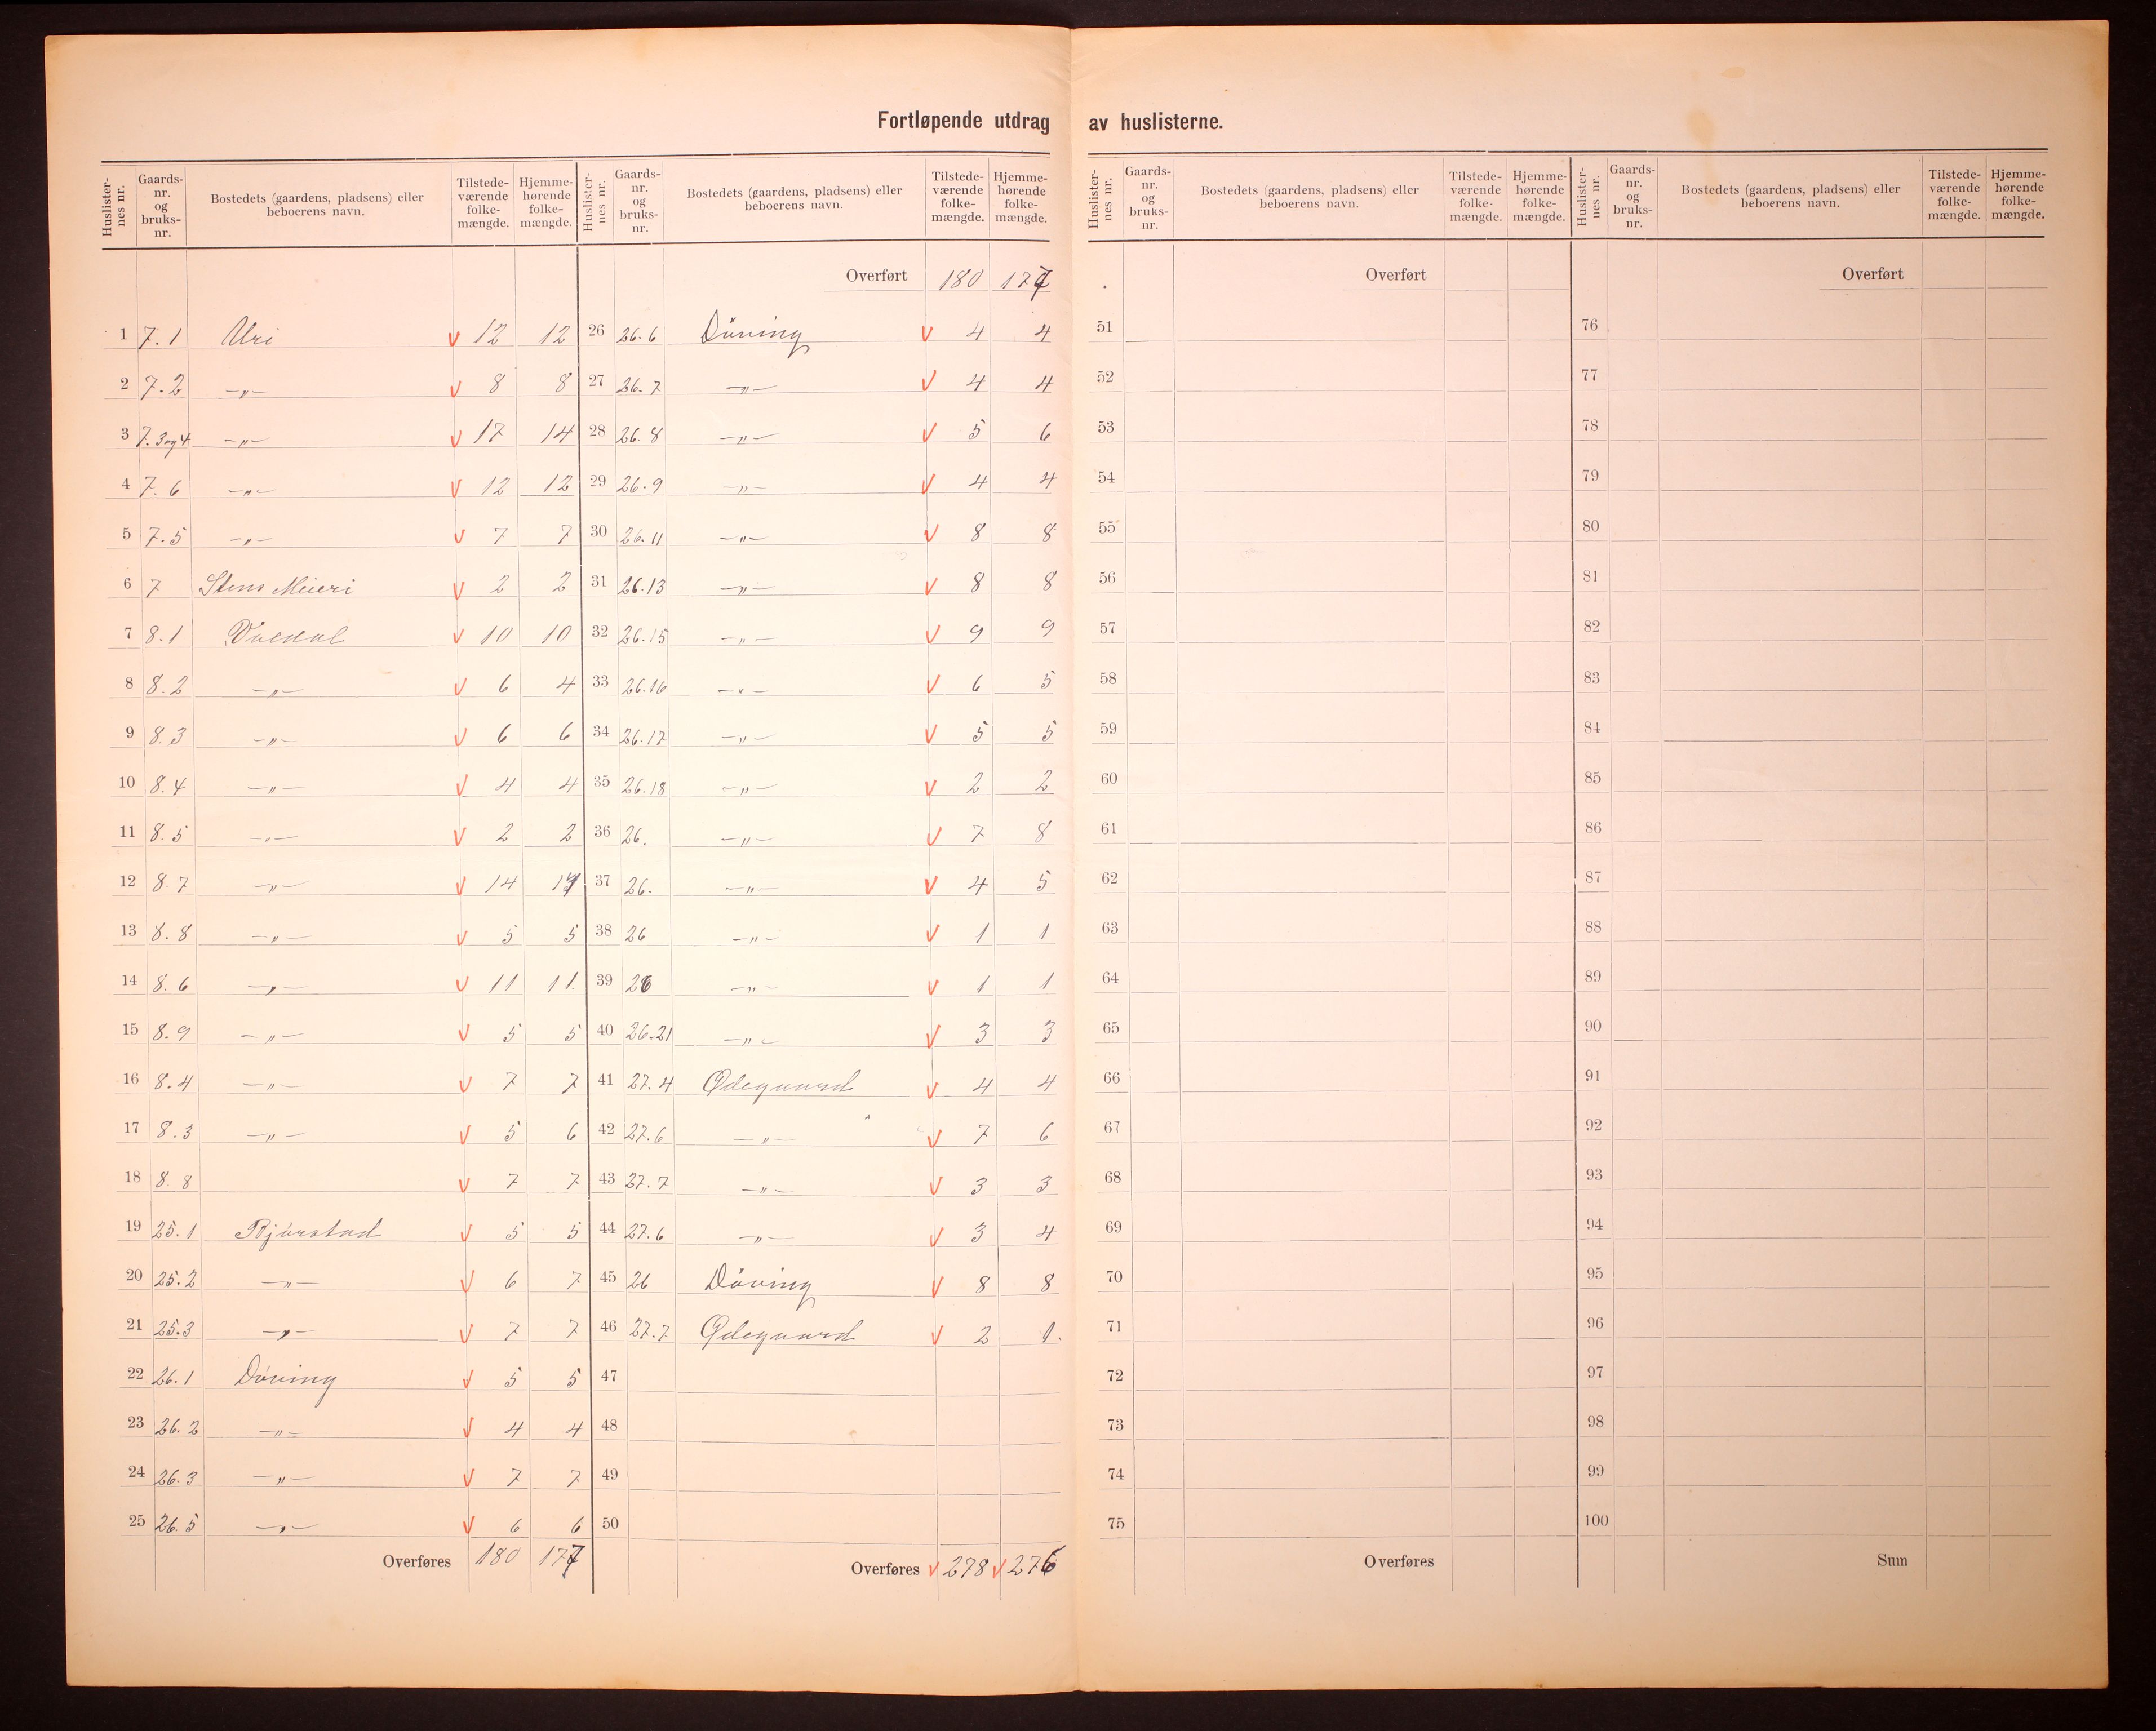 Fortløpende utdrag av huslisterne.
Huslister-nes nr. Gaards-nr. og bruks-nr. Bostedets (gaardens, pladsens) eller beboerens navn. Tilstede-værende folke-mængde. Hjemme-hørende folke-mængde.
1 7.1 Uri v 12 12
2 7.2 —„— v 8 8
3 7.3og4 —„— v 17 14
4 7.6 —„— v 12 12
5 7.5 —„— v 7 7
6 7 Stens Meieri v 2 2
7 8.1 Valdal v 10 10
8 8.2 —„— v 6 4
9 8.3 —„— v 6 6
10 8.4 —„— v 4 4
11 8.5 —„— v 2 2
12 8.7 —„— v 14
13 8.8 —„— v 5 5
14 8.6 —„— v 11 11.
15 8.9 —„— v 5 5
16 8.4 —„— v 7 7
17 8.3 —„— v 5 6
18 8.8 v 7 7
19 25.1 Bjørstad v 5 5
20 25.2 —„— v 6 7
21 25.3 —„— v 7 7
22 26.1 Døving v 5 5
23 26.2 —„— v 4 4
24 26.3 —„— v 7 7
25 26.5 —„— v 6 6
Overføres 180 177
Huslister-nes nr. Gaards-nr. og bruks-nr. Bostedets (gaardens, pladsens) eller beboerens navn. Tilstede-værende folke-mængde. Hjemme-hørende folke-mængde.
Overført 180 177
26 26.6 Døving v 4 4
27 26.7 —„— v 4 4
28 26.8 —„— v 5 6
29 26.9 —„— v 4 4
30 26.11 —„— v 8 8
31 26.13 —„— v 8 8
32 26.15 —„— v 9 9
33 26.16 —„— v 6 5
34 26.17 —„— v 5 5
35 26.18 —„— v 2 2
36 26. —„— v 7 8
37 26. —„— v 4 5
38 26 —„— v 1 1
39 26 —„— v 1 1
40 26.21 —„— v 3 3
41 27.4 Ødegaard v 4 4
42 27.6 —„— v 7 6
43 27.7 —„— v 3 3
44 27.6 —„— v 3 4
45 26 Døving v 8 8
46 27.7 Ødegaard v 2 1.
47
48
49
50
Overføres v 278 v 276
Huslister-nes nr. Gaards-nr. og bruks-nr. Bostedets (gaardens, pladsens) eller beboerens navn. Tilstede-værende folke-mængde. Hjemme-hørende folke-mængde.
Overført
51
52
53
54
55
56
57
58
59
60
61
62
63
64
65
66
67
68
69
70
71
72
73
74
75
Overføres
Huslister-nes nr. Gaards-nr. og bruks-nr. Bostedets (gaardens, pladsens) eller beboerens navn. Tilstede-værende folke-mængde. Hjemme-hørende folke-mængde.
Overført
76
77
78
79
80
81
82
83
84
85
86
87
88
89
90
91
92
93
94
95
96
97
98
99
100
Sum